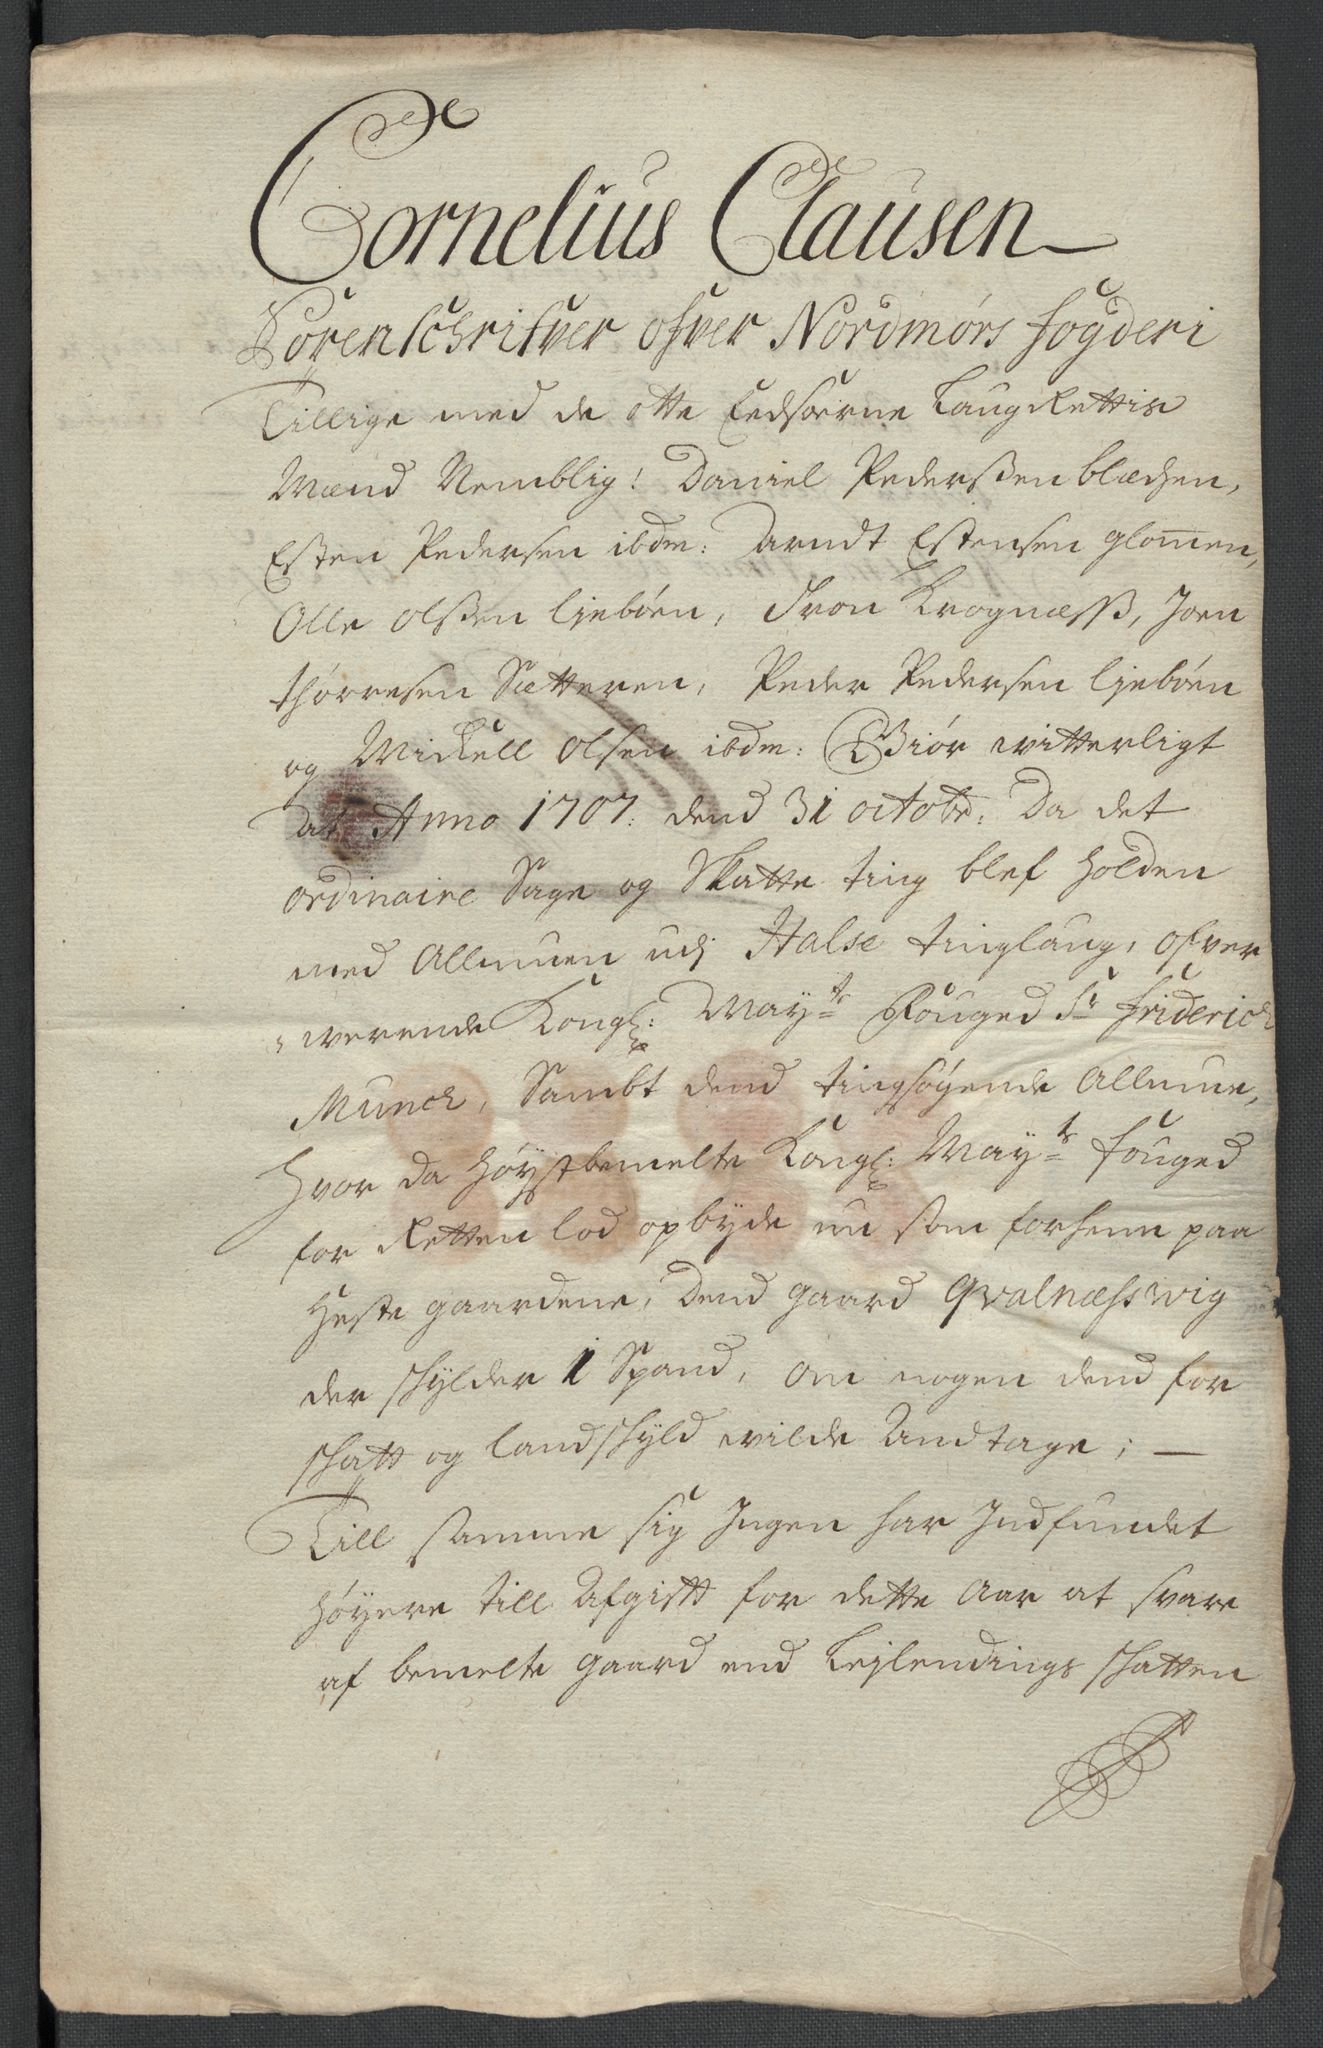 Cornelius Clausen
Sorenschrifver ofver Nordmørs fogderi
Tillige med de otte Eedsorne LaugRettis
Mænd Nemblig! Daniel Pederßen blæchen,
Esten Pedersen ibdm: Arndt Estensen glomen,
Olle Olßen lijebøen, Iver Krognæss, Joen
thorresen Sætteren, Peder Pedersen lijebøen
og Michell Olsen ibdm: Giør witterligt
at Anno 1707. dend 31 octobr: Da det
ordinaire Sage og Skatte ting blef holden
med Allmuen udj Halse tinglaug, ofver
werende Kongl: Mayts Fouged Sr Friderich
Munch, Sambt dend tingsøgende Allmue,
hvor da høystbemelte Kongl: Mayts fouged
for Retten lod opbyde nu som forhenn paa
heste gaardene, Dend gaard Qvalnæsswig
der schylder 1 Spand, om nogen dend for
schatt og landschyld wilde Andtage; —
Till samme sig Ingen har Indfundet
høyere till Afgift for dette Aar at svare
af bemelte gaard end Leylendings schatten